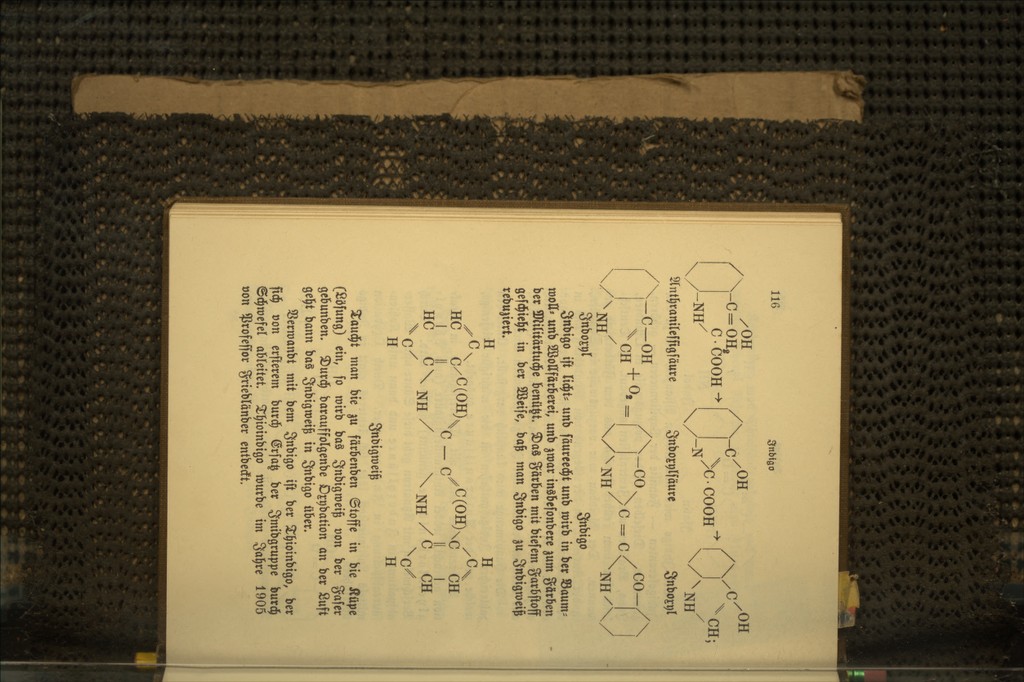 116
Indigo
OH OH OH
C=OH₂ C C
C·COOH → C·COOH → CH;
NH N NH
Anthramleffigsäure Indoxylsäure Indoxyl
C—OH CO CO
CH + O₂ = C=C
NH NH NH
Indoxyl Indigo
Indigo ist licht- und säureecht und wird in der Baum-
woll- und Wollfärberei, und zwar insbesondere zum Färben
der Militärtuche benützt. Das Färben mit diesem Farbstoff
geschieht in der Weise, daß man Indigo zu Indigweiß
reduziert.
H H
C C
HC C—C(OH) C(OH)—C CH
C — C
HC C NH NH C CH
C C
H H
Indigweiß
Taucht man die zu färbenden Stoffe in die Küpe
(Lösung) ein, so wird das Indigweiß von der Faser
gebunden. Durch darauffolgende Oxydation an der Luft
geht dann das Indigweiß in Indigo über.
Verwandt mit dem Indigo ist der Thioindigo, der
sich von ersterem durch Ersatz der Imidgruppe durch
Schwefel ableitet. Thioindigo wurde im Jahre 1905
von Professor Friedländer entdeckt.